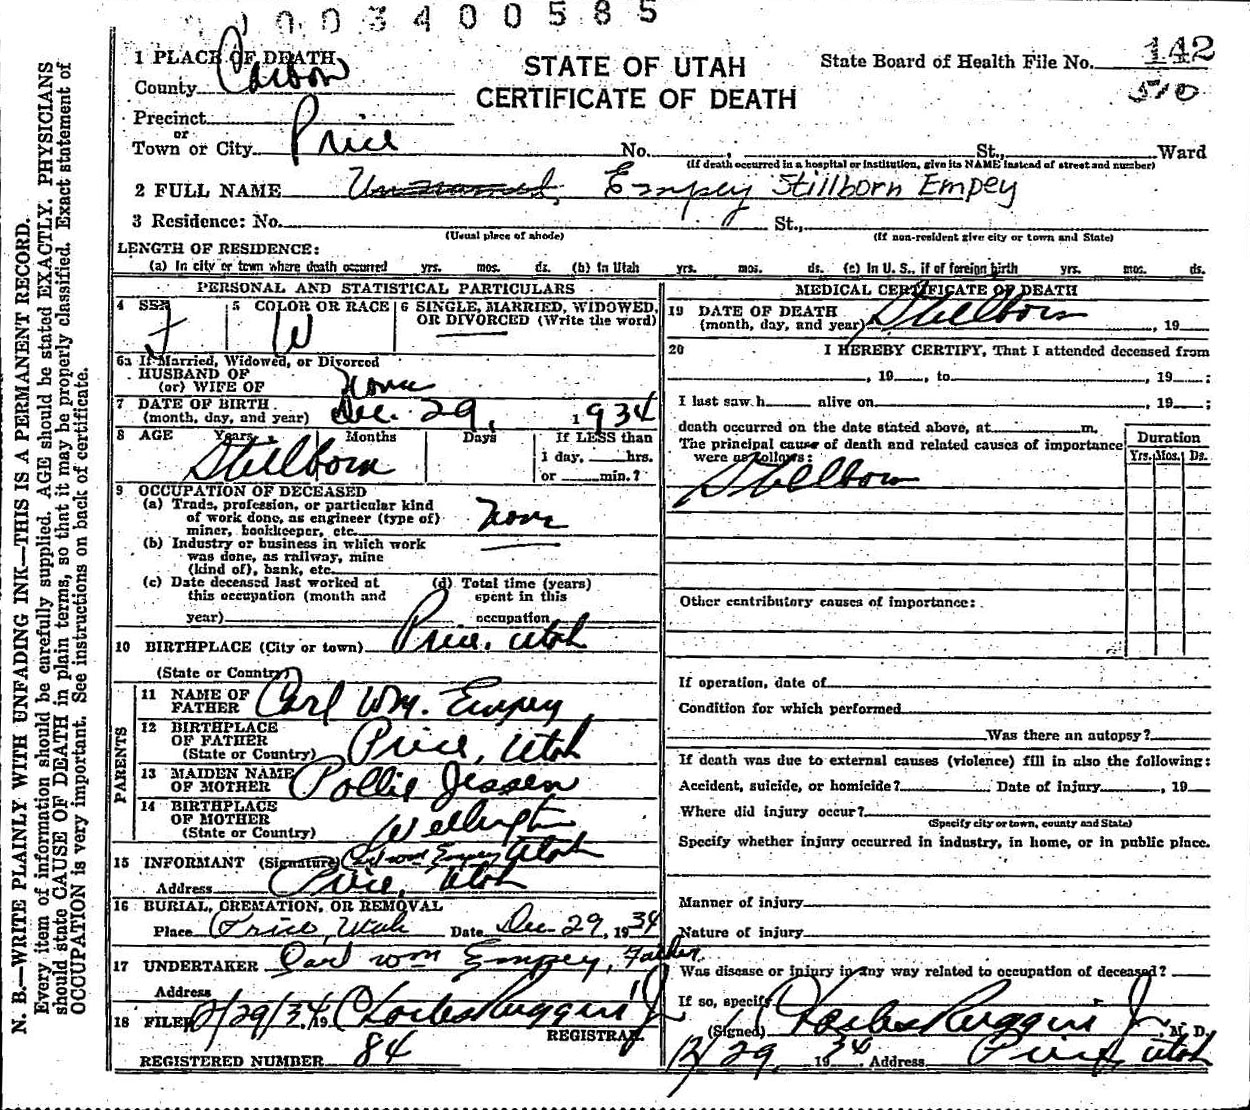 003400585
1 PLACE OF DEATH
County Carbon
STATE OF UTAH
CERTIFICATE OF DEATH
State Board of Health File No. 142
510
Precinct
or
Town or City Price No. , St., Ward
(If death occurred in a hospital or institution, give its NAME instead of street and number)
2 FULL NAME Unnamed, Empey Stillborn Empey
3 Residence: No. St.,
(Usual place of abode) (If non-resident give city or town and State)
LENGTH OF RESIDENCE:
(a) In city or town where death occurred yrs. mos. ds. (b) In Utah yrs. mos. ds. (c) In U. S., if of foreign birth yrs. mos. ds.
PERSONAL AND STATISTICAL PARTICULARS
4 SEX 5 COLOR OR RACE 6 SINGLE, MARRIED, WIDOWED,
OR DIVORCED (Write the word)
f W
6a If Married, Widowed, or Divorced
HUSBAND OF
(or) WIFE OF None
7 DATE OF BIRTH
(month, day, and year) Dec. 29, 1934
8 AGE Years Months Days If LESS than
1 day, hrs.
or min.?
Stillborn
9 OCCUPATION OF DECEASED
(a) Trade, profession, or particular kind
of work done, as engineer (type of)
miner, bookkeeper, etc. None
(b) Industry or business in which work
was done, as railway, mine
(kind of), bank, etc.
(c) Date deceased last worked at
this occupation (month and
year)
(d) Total time (years)
spent in this
occupation
10 BIRTHPLACE (City or town) Price, Utah
(State or Country)
PARENTS
11 NAME OF
FATHER Carl Wm. Empey
12 BIRTHPLACE
OF FATHER
(State or Country) Price, Utah
13 MAIDEN NAME
OF MOTHER Pollie Jessen
14 BIRTHPLACE
OF MOTHER
(State or Country) Wellington
Utah
15 INFORMANT (Signature) Carl Wm Empey
Address Price, Utah
16 BURIAL, CREMATION, OR REMOVAL
Place Price, Utah Date Dec 29, 1934
17 UNDERTAKER Carl Wm Empey, Father
Address
18 FILED 12/29/34 19 Charles Ruggeri Jr
REGISTRAR
REGISTERED NUMBER 84
MEDICAL CERTIFICATE OF DEATH
19 DATE OF DEATH
(month, day, and year) Stillborn , 19
20 I HEREBY CERTIFY, That I attended deceased from
, 19 , to , 19 ;
I last saw h alive on , 19 ;
death occurred on the date stated above, at m.
The principal cause of death and related causes of importance
were as follows:
Duration
Yrs. Mos. Ds.
Stillborn
Other contributory causes of importance:
If operation, date of
Condition for which performed
Was there an autopsy?
If death was due to external causes (violence) fill in also the following:
Accident, suicide, or homicide? Date of Injury , 19
Where did injury occur?
(Specify city or town, county and State)
Specify whether injury occurred in industry, in home, or in public place.
Manner of injury
Nature of injury
Was disease or injury in any way related to occupation of deceased?
If so, specify
(Signed) Charles Ruggeri Jr M. D.
12/29 1934 Address Price, Utah
N. B.—WRITE PLAINLY WITH UNFADING INK—THIS IS A PERMANENT RECORD.
Every item of information should be carefully supplied. AGE should be stated EXACTLY. PHYSICIANS
should state CAUSE OF DEATH in plain terms, so that it may be properly classified. Exact statement of
OCCUPATION is very important. See instructions on back of certificate.